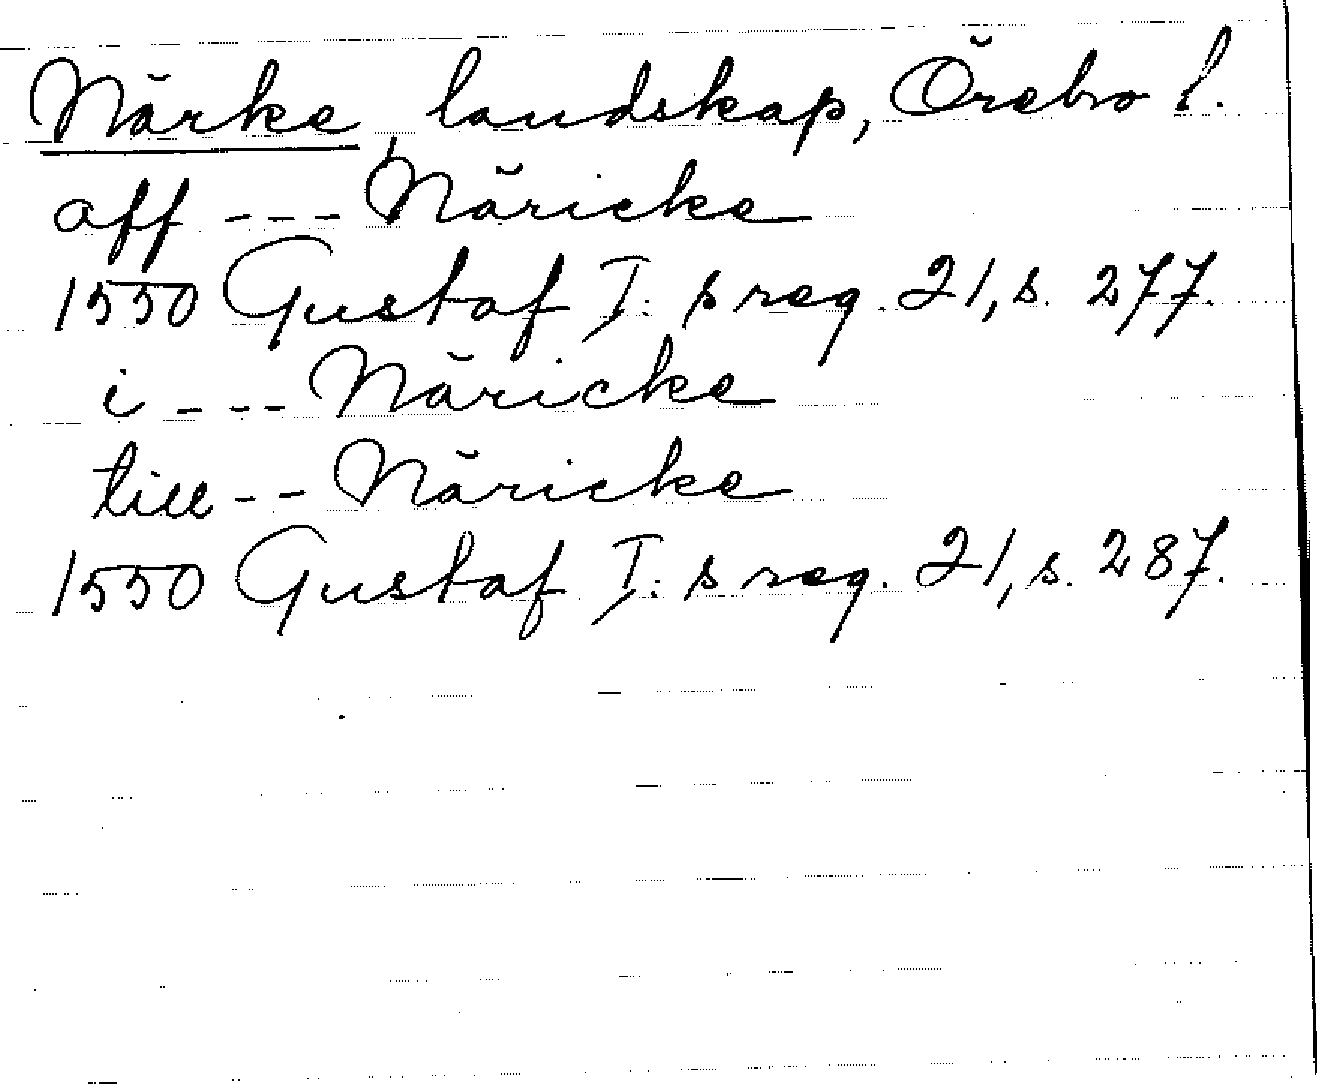 Närke, landskap, Örebro l.
aff --- Näricke
1550 Gustaf I:s reg. 21, s. 277.
i --- Näricke
till -- Näricke
1550 Gustaf I:s reg. 21, s. 287.